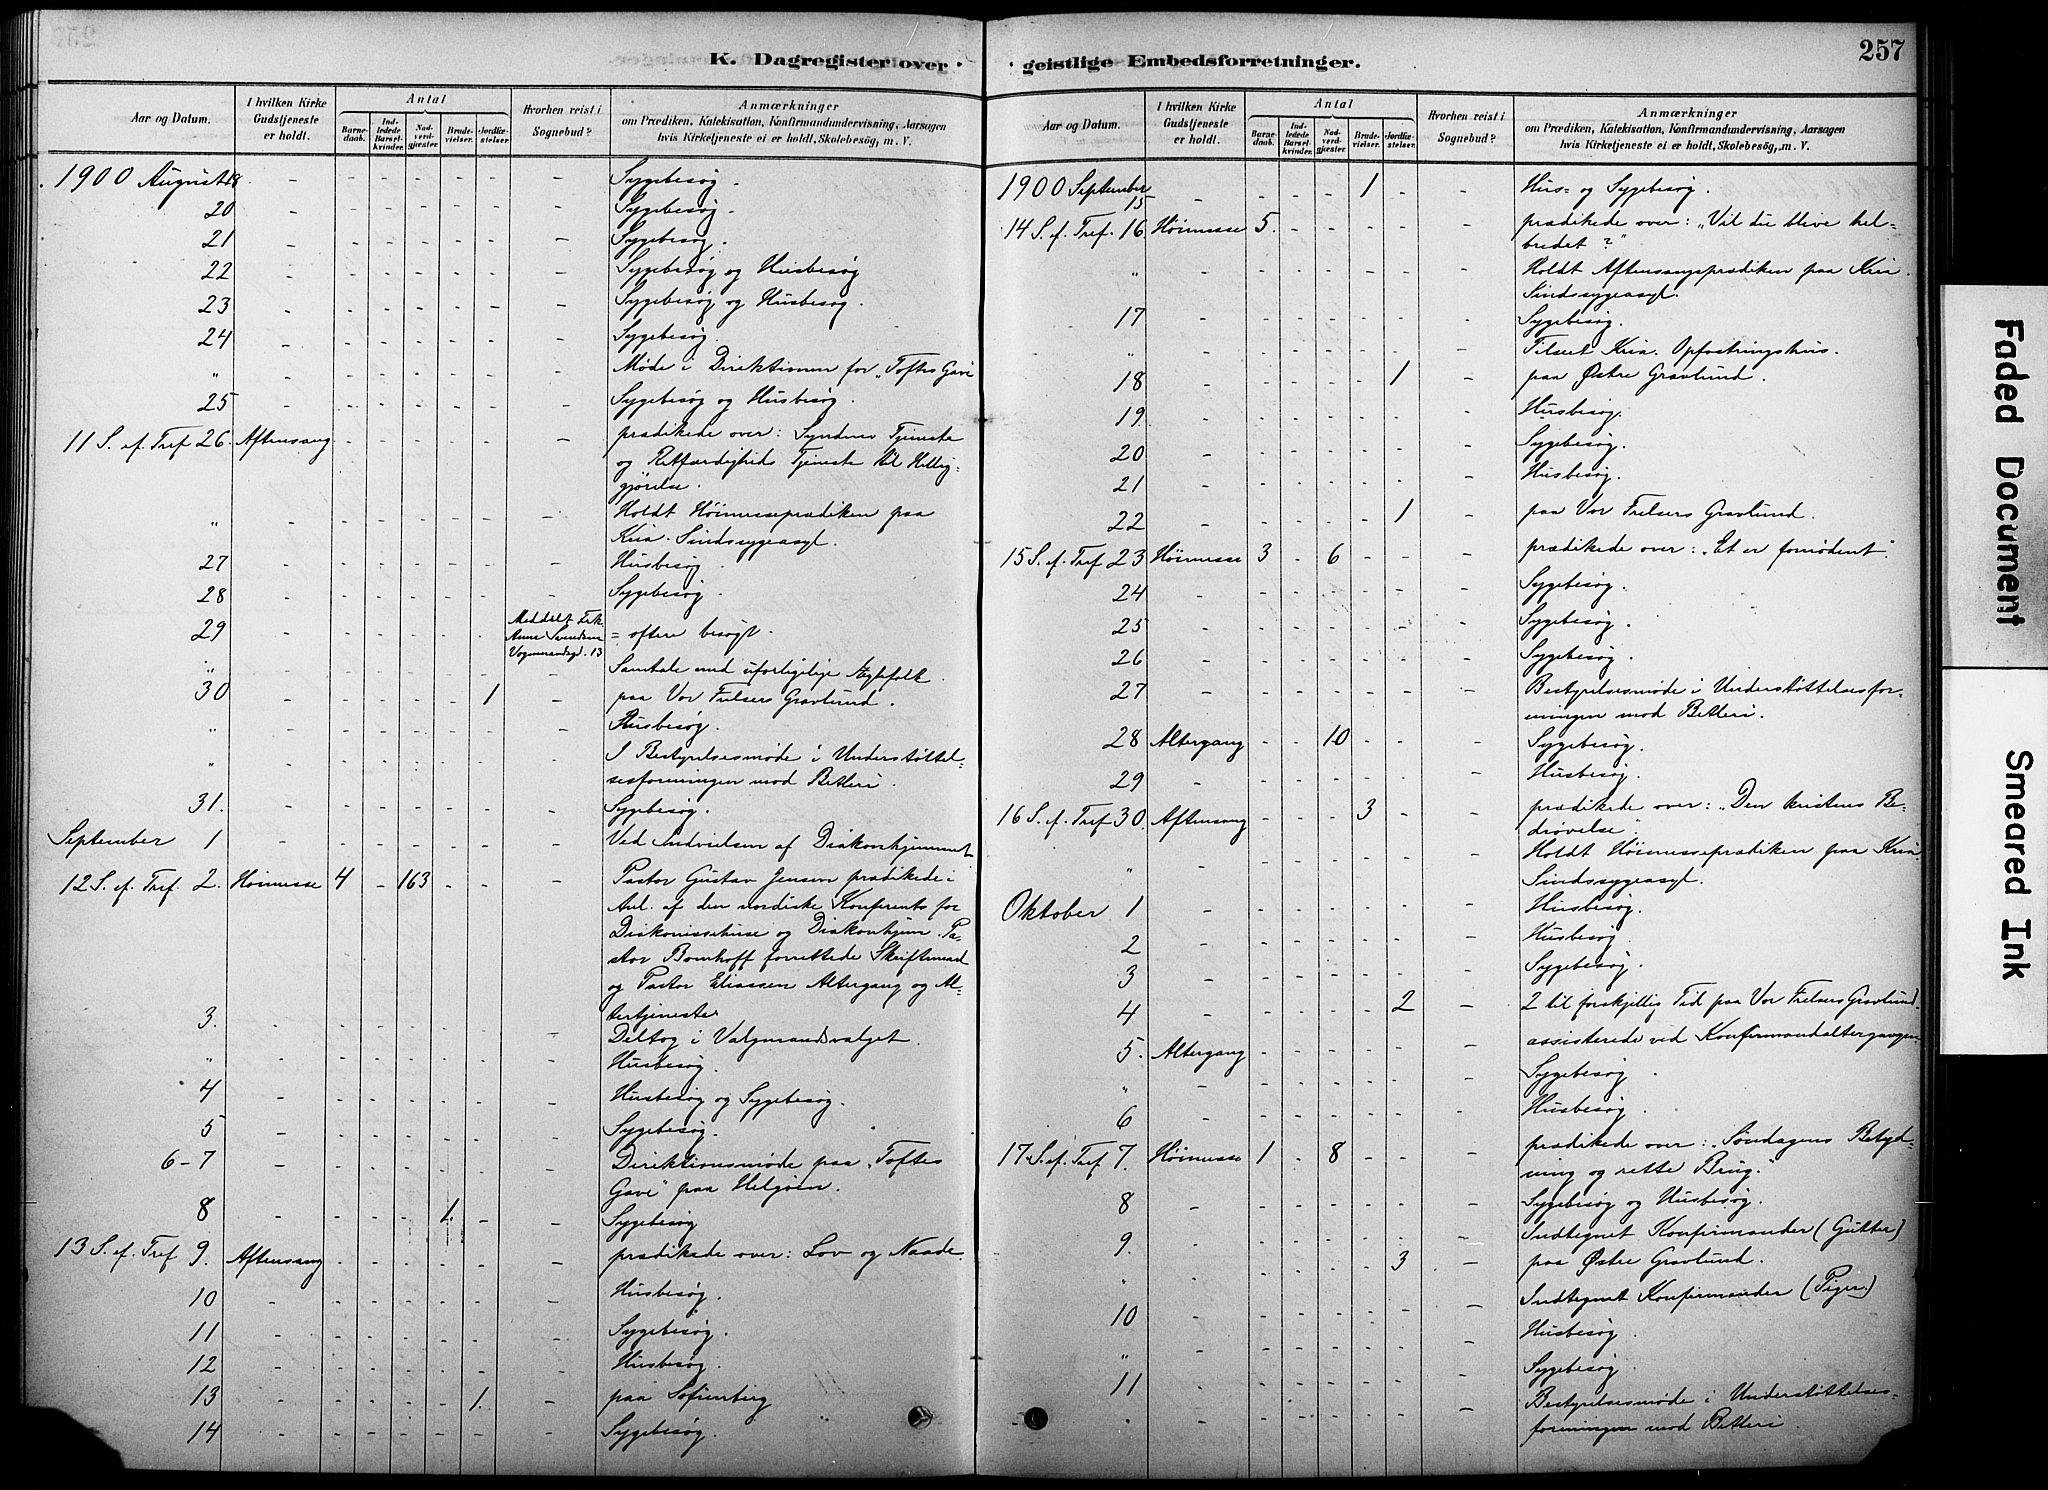 K. Dagregister over
Aar og Datum.
I hvilken Kirke Gudstjeneste er holdt.
Antal
Barnedaab.
Indledede Barselkvinder.
Nadverdgjæster
Brudevielser.
Jordfæstelser.
Hvorhen reist i Sognebud?
Anmærkninger
om Prædiken, Katekisation, Konfirmandundervisning, Aarsagen
hvis Kirketjeneste ei er holdt, Skolebesøg, m. V.
1900 August 18. - - - - - - - Sygebesøg.
20 - - - - - - - Sygebesøg.
21 - - - - - - - Sygebesøg.
22 - - - - - - - Sygebesøg og Husbesøg
23 - - - - - - - Sygebesøg og Husbesøg.
24 - - - - - - - Sygebesøg.
" - - - - - - - Møde i Direktionen for "Toftes Gave
25 - - - - - - - Sygebesøg og Husbesøg.
11 S. ef. Tref 26. Aftensang - - - - - - prædikede over: Syndens Tjeneste
og Retfærdigheds Tjeneste til Hellig-
gjørelse.
" - - - - - - - Holdt Høimesseprædiken paa
Kria. Sindssygeasyl.
27 - - - - - - - Husbesøg.
28 - - - - - - - Sygebesøg.
29 - - - - - - Meddelt Frk. Anna Svendsen Vognmandsgd. 13 = oftere besøgt.
" - - - - - - Samtale med uforligelige Ægtefolk.
30 - - - - - 1 - paa Vor Frelsers Gravlund.
" - - - - - - - Husbesøg.
" - - - - - - - I Bestyrelsesmøde i Understøttel-
sesforeningen mod Betleri.
31. - - - - - - - Sygebesøg.
September 1 - - - - - - - Ved Indvielsen af Diakonhjemmet
12 S. ef. Tref. 2. Høimesse 4 - 163 - - - Pastor Gustav Jensen prædikede i
Anl. af den nordiske Konferents for
Diakonissehuse og Diakonhjem. Pa-
stor Bomhoff forrettede Skriftemaal
og Pastor Eliassen Altergang og Al-
tertjeneste.
3. - - - - - - - Deltog i Valgmandsvalget.
" - - - - - - - Husbesøg.
4 - - - - - - - Husbesøg og Sygebesøg.
5 - - - - - - - Sygebesøg.
6-7 - - - - - - - Direktionsmøde paa "Toftes
Gave" paa Helgøen.
8 - - - - 1. - - Sygebesøg
13 S. ef. Tref 9. Aftensang - - - - - - prædikede over: Lov og Naade.
10 - - - - - - - Husbesøg.
11 - - - - - - - Sygebesøg.
12 - - - - - - - Husbesøg.
13 - - - - - 1. - paa Sofienberg
14 - - - - - - - Sygebesøg.
geistlige Embedsforretninger.
257
Aar og Datum.
I hvilken Kirke Gudstjeneste er holdt.
Antal
Barnedaab.
Indledede Barselkvinder.
Nadverdgjæster
Brudevielser.
Jordfæstelser.
Hvorhen reist i Sognebud?
Anmærkninger
om Prædiken, Katekisation, Konfirmandundervisning, Aarsagen
hvis Kirketjeneste ei er holdt, Skolebesøg, m. V.
1900 September 15 - - - - 1 - - Hus- og Sygebesøg.
14 S. ef. Tref. 16. Høimesse 5. - - - - - prædikede over: "Vil du blive hel-
bredet?"
" - - - - - - - Holdt Aftensangsprædiken paa Kria.
Sindssygeasyl.
17 - - - - - - - Sygebesøg.
" - - - - - - - Tilseet Kria. Opfostringshus.
18 - - - - - 1 - paa Østre Gravlund.
19 - - - - - - - Husbesøg.
20 - - - - - - - Sygebesøg.
21 - - - - - - - Husbesøg.
22 - - - - - 1 - paa Vor Frelsers Gravlund.
15 S. ef. Tref 23 Høimesse 3 - 6 - - - prædikede over: "Et er fornødent".
24 - - - - - - - Sygebesøg.
25 - - - - - - - Sygebesøg.
26 - - - - - - - Sygebesøg.
27 - - - - - - - Bestyrelsesmøde i Understøttelsesfor-
eningen mod Betleri.
28 Altergang - - 10 - - - Sygebesøg.
29 - - - - - - - Husbesøg.
16 S. ef. Tref 30. Aftensang - - - 3 - - prædikede over: "Den kristnes Be-
drøvelse".
" - - - - - - - Holdt Høimesseprædiken paa Kria
Sindssygeasyl.
Oktober 1 - - - - - - - Husbesøg.
2 - - - - - - - Husbesøg.
3 - - - - - - - Sygebesøg.
4 - - - - - 2 - 2 til forskjellig Tid paa Vor Frelsers Gravlund.
5. Altergang - - - - - - assisterede ved Konfirmandaltergangen
" - - - - - - - Sygebesøg.
6 - - - - - - - Husbesøg.
17 S. ef. Tref 7. Høimesse 1 - 8 - - - prædikede over: "Søndagens Betyd-
ning og rette Brug."
8 - - - - - - - Sygebesøg og Husbesøg.
9. - - - - - - - Indtegnet Konfirmander (Gutter)
" - - - - - 3 - paa Østre Gravlund.
10 - - - - - - - Indtegnet Konfirmander (Piger.)
" - - - - - - - Husbesøg.
11 - - - - - - - Sygebesøg.
" - - - - - - - Bestyrelsesmøde i Understøttelses-
foreningen mod Betleri.
Faded Document
Smeared Ink